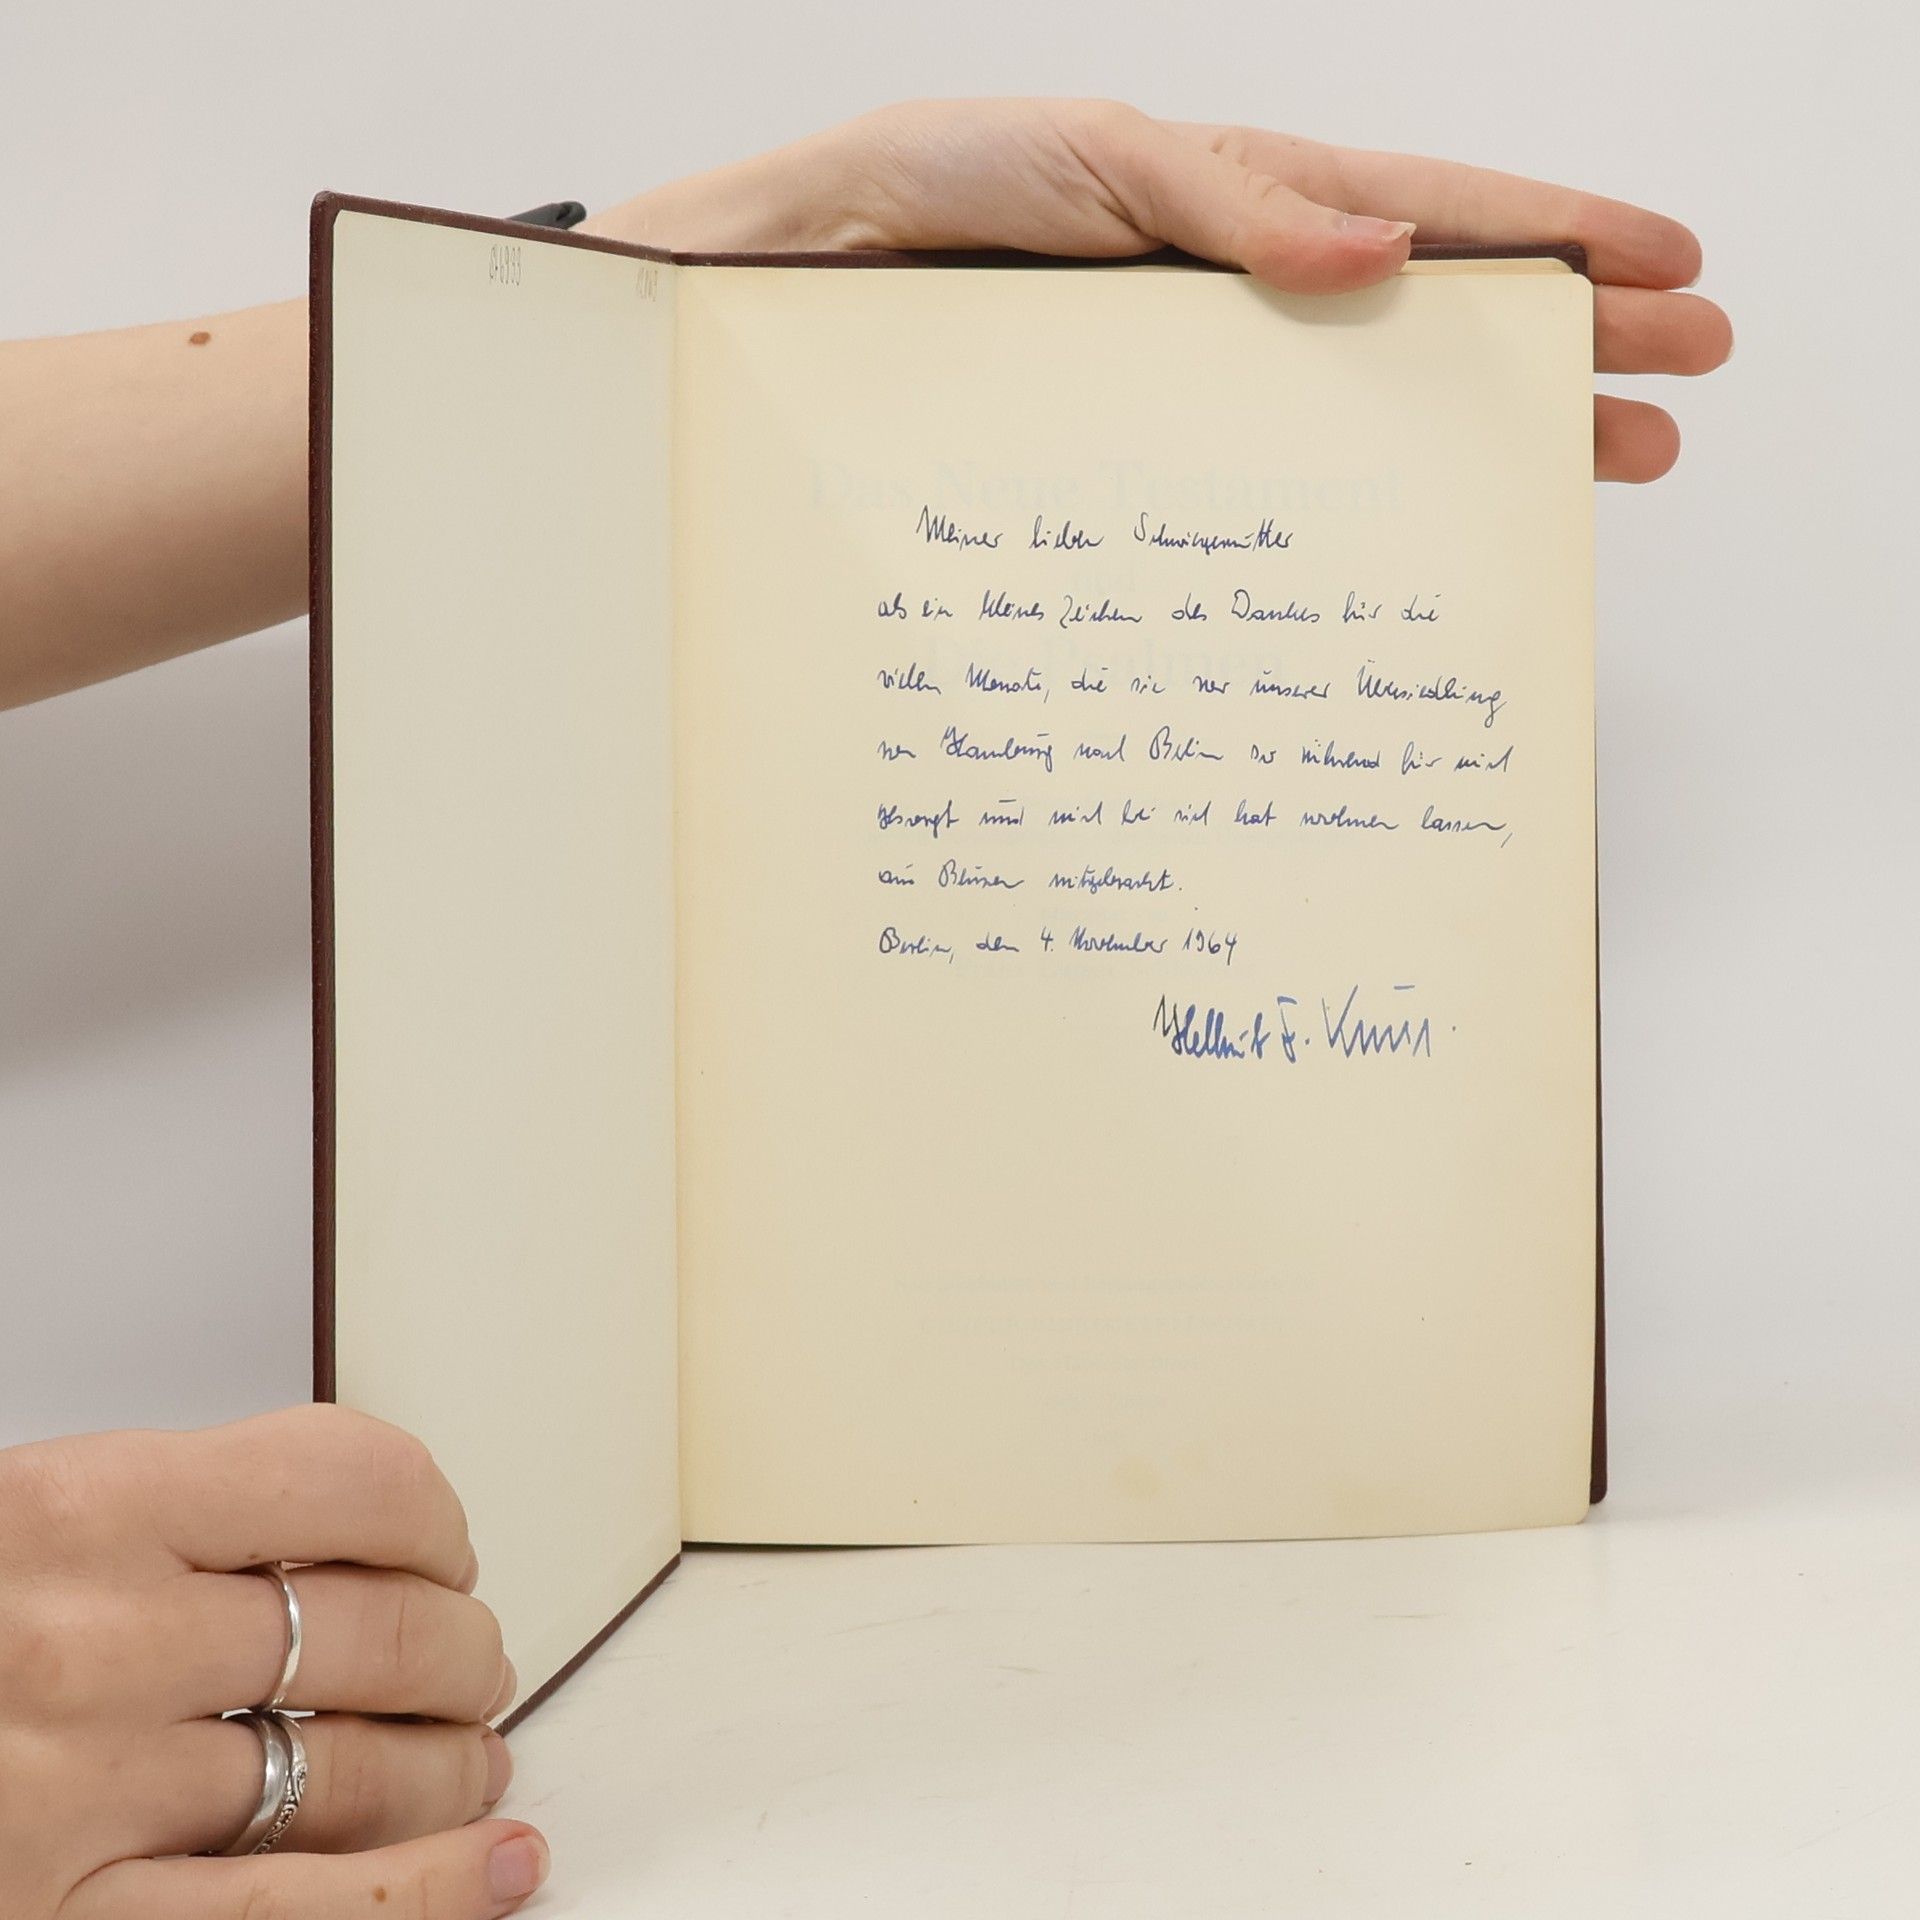 Das Neue Testament
Die Psalmen
Meiner lieben Schwiegermutter
als ein kleines Zeichen des Dankes für die
vielen Monate, die sie vor unserer Übersiedlung
von Hamburg nach Berlin so rührend für mich
gesorgt und mich bei sich hat wohnen lassen,
aus mitgebracht.
Berlin, den 4. November 1964
Hellmut F.